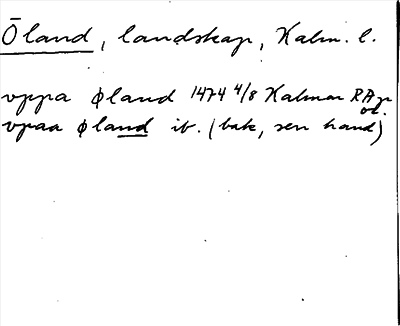 Öland, landskap, Kalm. l.
vppa øland 1474 4/8 Kalmar RAp
or.
vpaa øland ib. (bak, sen hand)